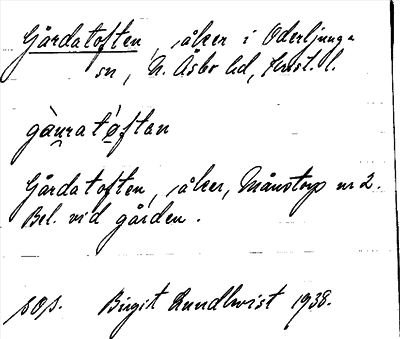 Gårdatoften, åker i Oderljunga
sn, N. Åsbo hd, Krist. l.
gàu̯ratǻftan
Gårdatoften, åker, Månstorp nr 2.
Bel. vid gården.
Birgit Lundkvist 1938.